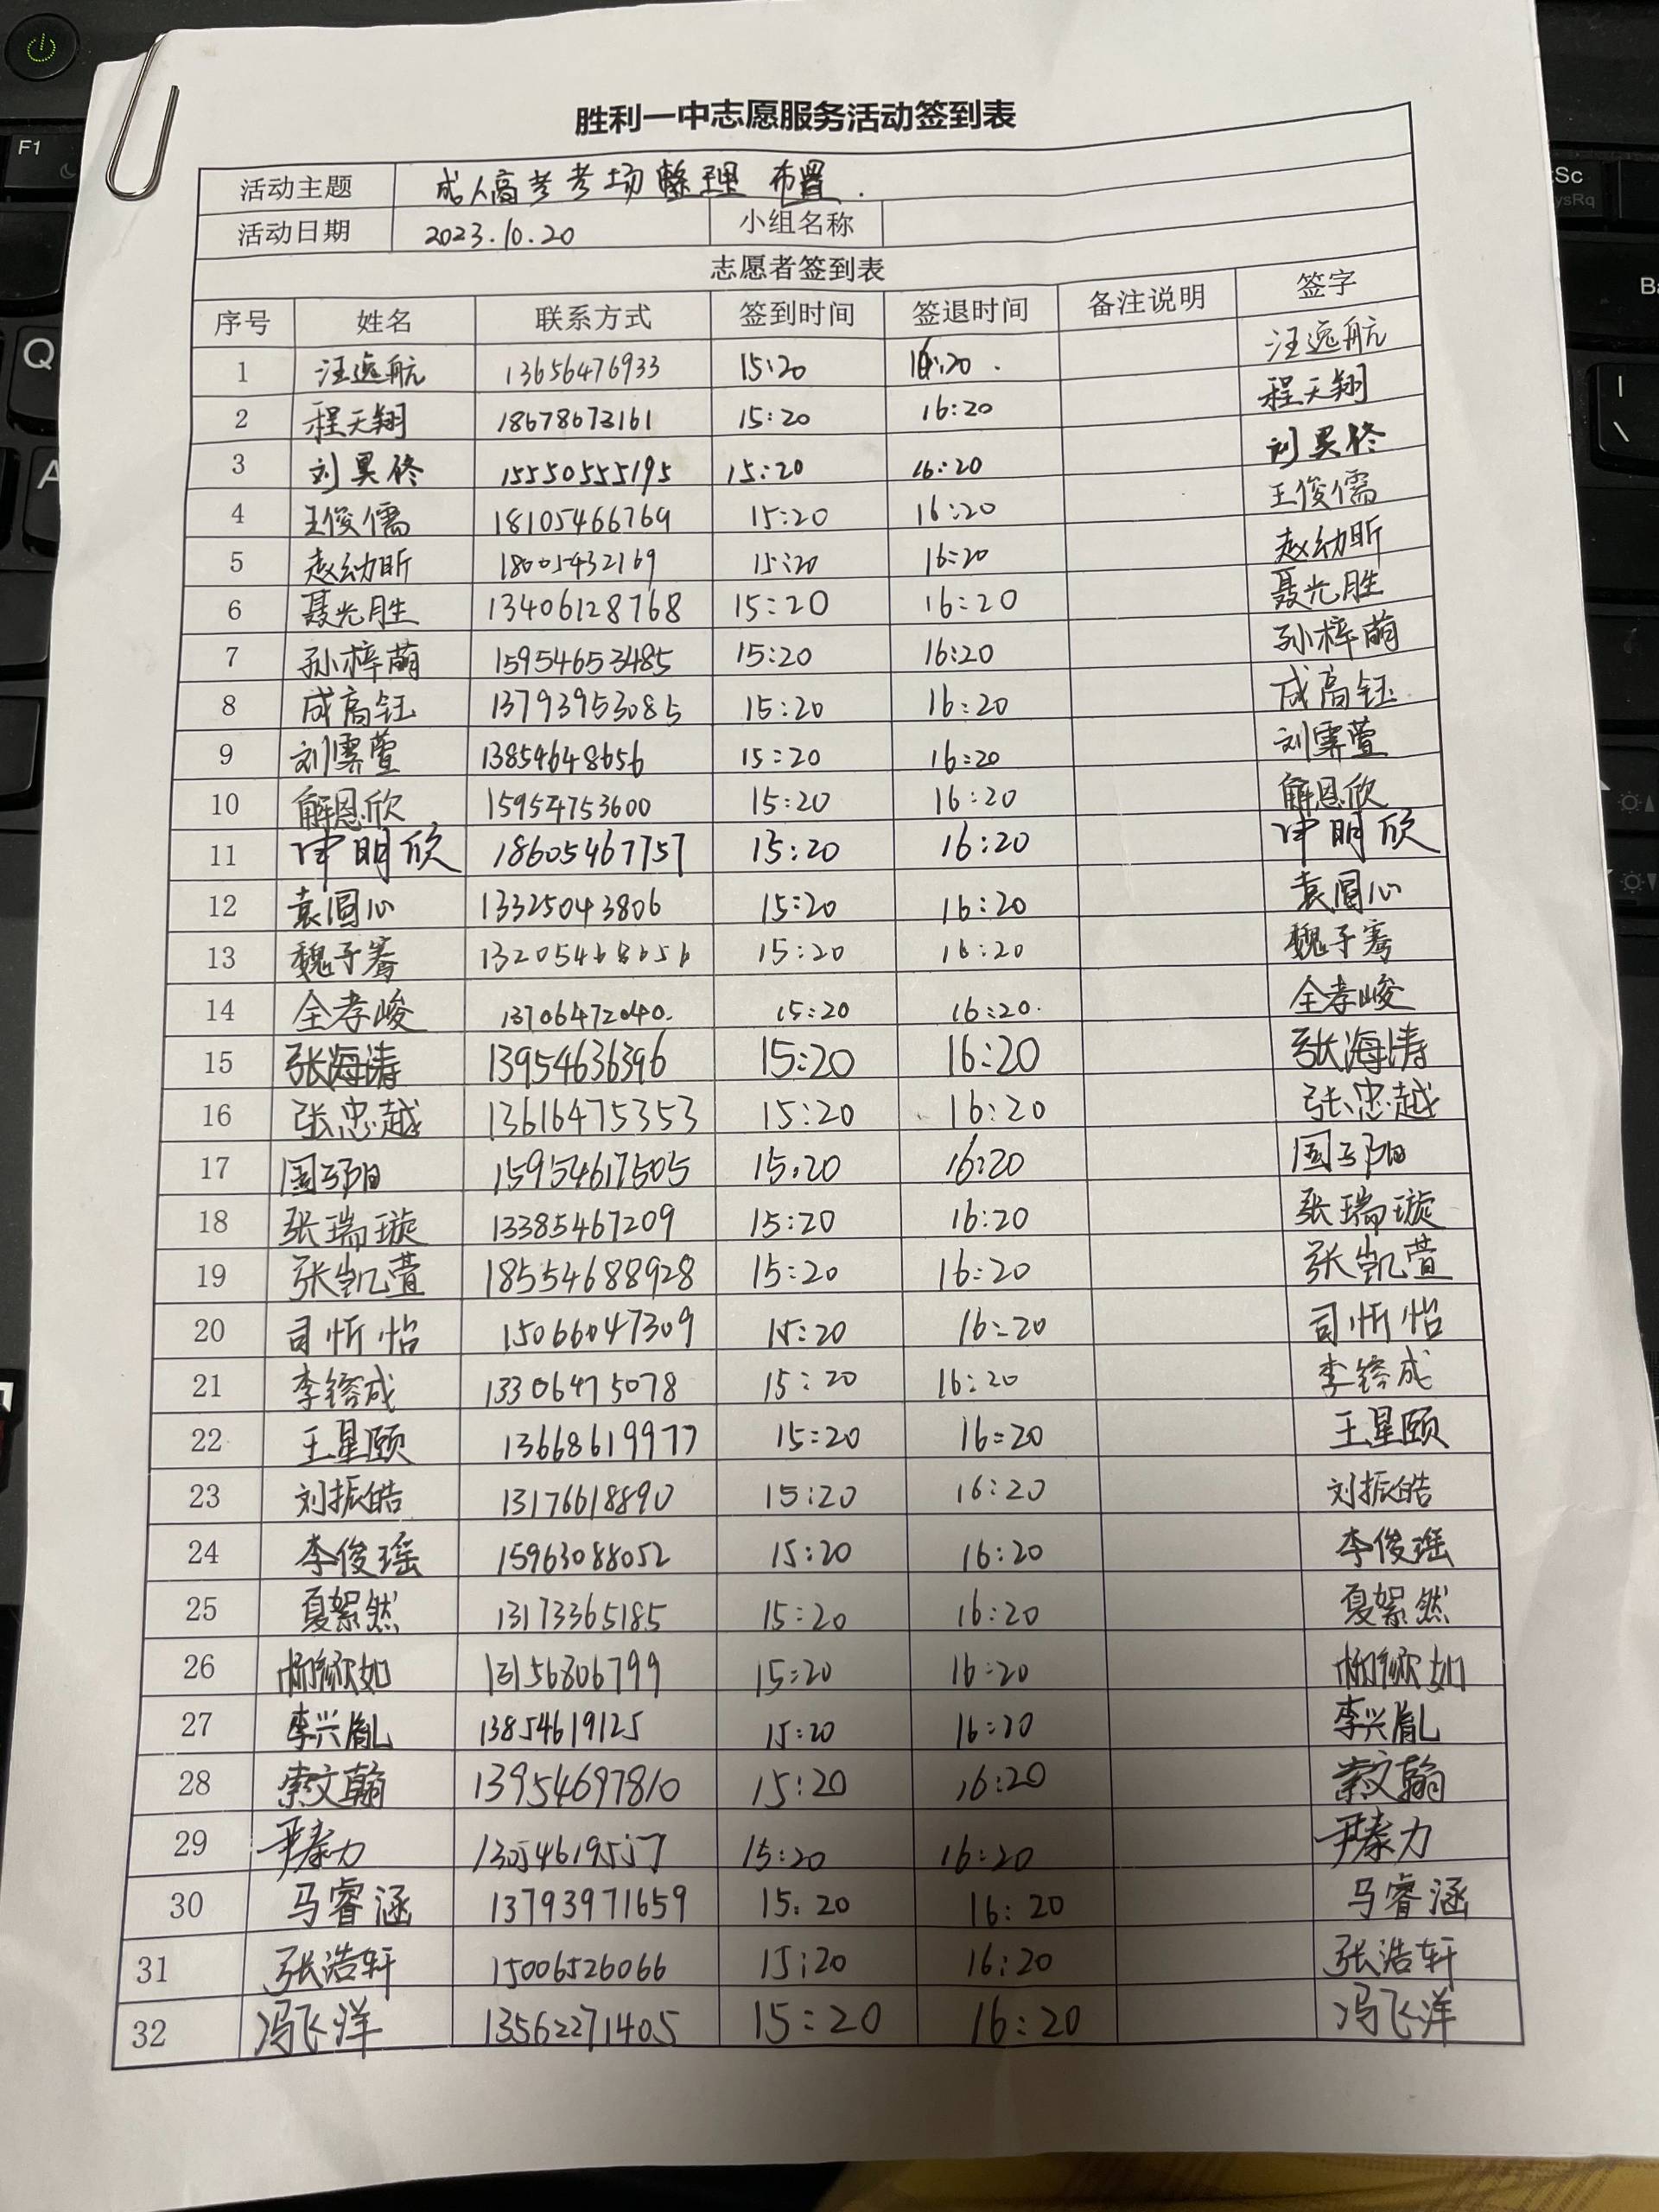 胜利一中志愿服务活动签到表
活动主题 成人高考考场整理 布置.
活动日期 2023.10.20 小组名称
志愿者签到表
序号 姓名 联系方式 签到时间 签退时间 备注说明 签字
1 汪逸航 13656476933 15:20 16:20 汪逸航
2 程天翔 18678673161 15:20 16:20 程天翔
3 刘昊佟 15550555195 15:20 16:20 刘昊佟
4 王俊儒 18105466769 15:20 16:20 王俊儒
5 赵幼昕 18005432169 15:20 16:20 赵幼昕
6 聂光胜 13406128768 15:20 16:20 聂光胜
7 孙梓萌 15954653485 15:20 16:20 孙梓萌
8 成高钰 13793953085 15:20 16:20 成高钰
9 刘霁萱 13854648656 15:20 16:20 刘霁萱
10 解恩欣 15954753600 15:20 16:20 解恩欣
11 明欣 18605467757 15:20 16:20 明欣
12 袁圆心 13325043806 15:20 16:20 袁圆心
13 魏子骞 13205468656 15:20 16:20 魏子骞
14 全孝峻 13706472040. 15:20 16:20. 全孝峻
15 张海涛 13954636396 15:20 16:20 张海涛
16 张忠越 13616475353 15:20 16:20 张忠越
17 国子阳 15954617505 15:20 16:20 国子阳
18 张瑞璇 13385467209 15:20 16:20 张瑞璇
19 张凯萱 18554688928 15:20 16:20 张凯萱
20 司忻怡 15066047309 15:20 16:20 司忻怡
21 李镕成 13306475078 15:20 16:20 李镕成
22 王星颐 13668619977 15:20 16:20 王星颐
23 刘振皓 13176618890 15:20 16:20 刘振皓
24 李俊瑶 15963088052 15:20 16:20 李俊瑶
25 夏絮然 13173365185 15:20 16:20 夏絮然
26 13156806799 15:20 16:20
27 李兴胤 13854619125 15:20 16:20 李兴胤
28 索文翰 13954697810 15:20 16:20 索文翰
29 尹秦力 13054619557 15:20 16:20 尹秦力
30 马睿涵 13793971659 15:20 16:20 马睿涵
31 张浩轩 15006526066 15:20 16:20 张浩轩
32 冯飞洋 13562271405 15:20 16:20 冯飞洋
F1
Q
A